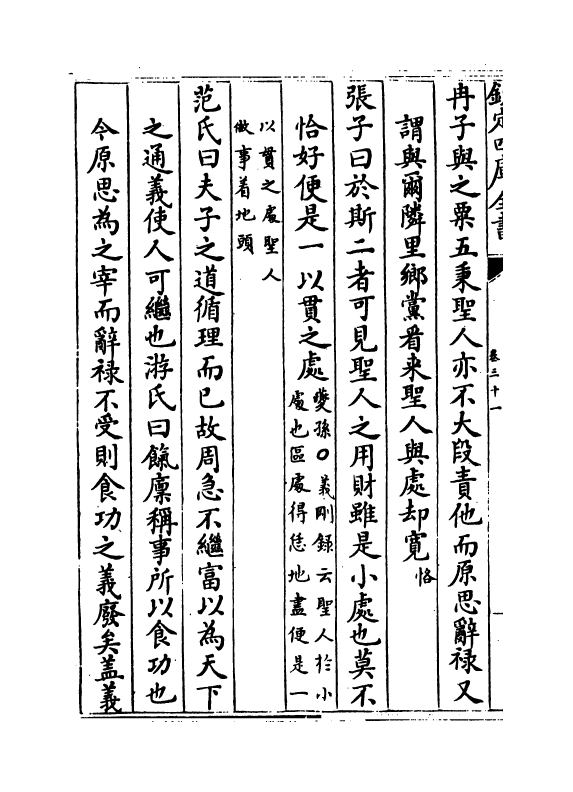 欽定四庫全書
卷三十一
冉子與之粟五秉聖人亦不大段責他而原思辭禄又
謂與爾隣里鄉黨看来聖人與處却寛恪
張子曰於斯二者可見聖人之用財雖是小處也莫不
恰好便是一以貫之處夔孫〇義剛録云聖人於小
處也區處得恁地盡便是一
以貫之處聖人
做事着地頭
范氏曰夫子之道循理而已故周急不繼富以為天下
之通義使人可繼也游氏曰餼廪稱事所以食功也
今原思為之宰而辭禄不受則食功之義廢矣盖義